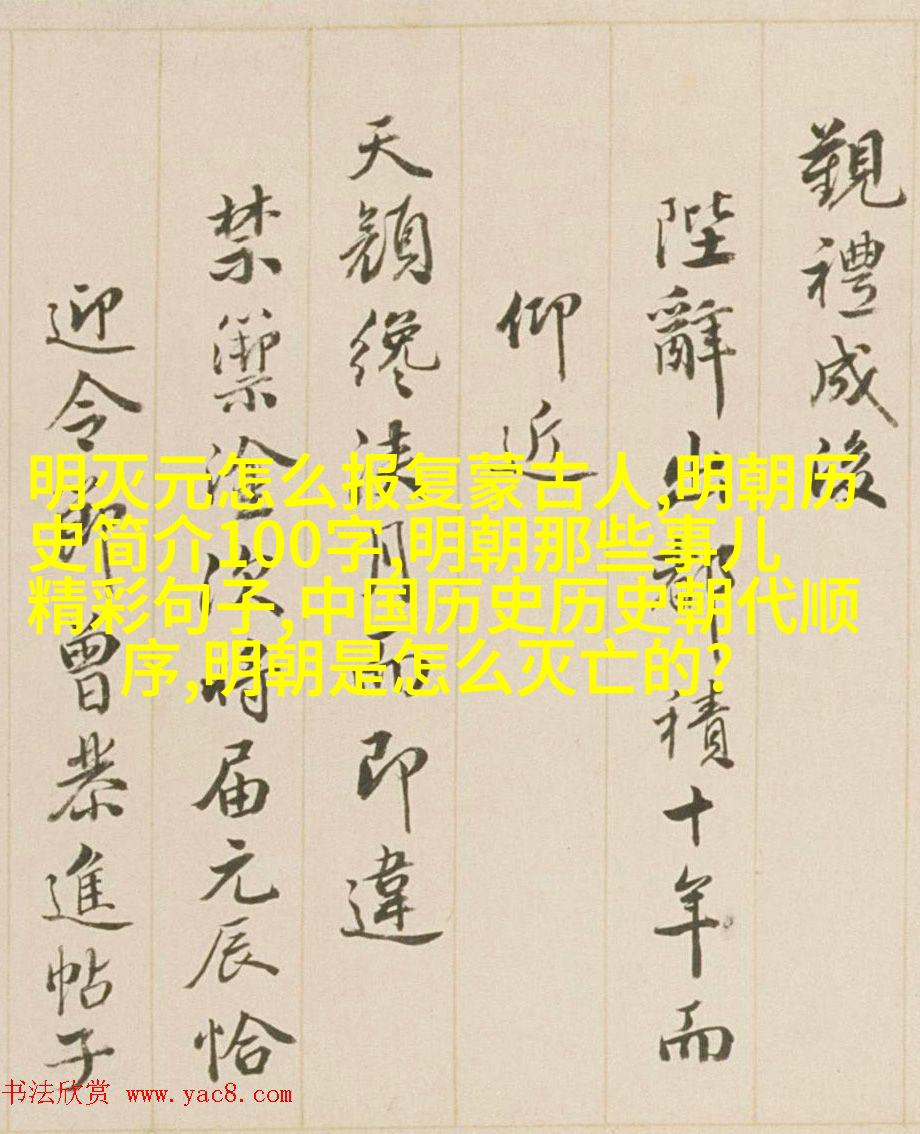 覲禮成後
陛辭出都積十年而
仰近
天顏纔浹月而即違
禁籞時届元辰恰
迎令節曾恭進帖子
明灭元怎么报复蒙古人,明朝历
史简介100字,明朝那些事儿
精彩句子,中国历史历史朝代顺
序,明朝是怎么灭亡的?
书法欣赏 www.yac8.com